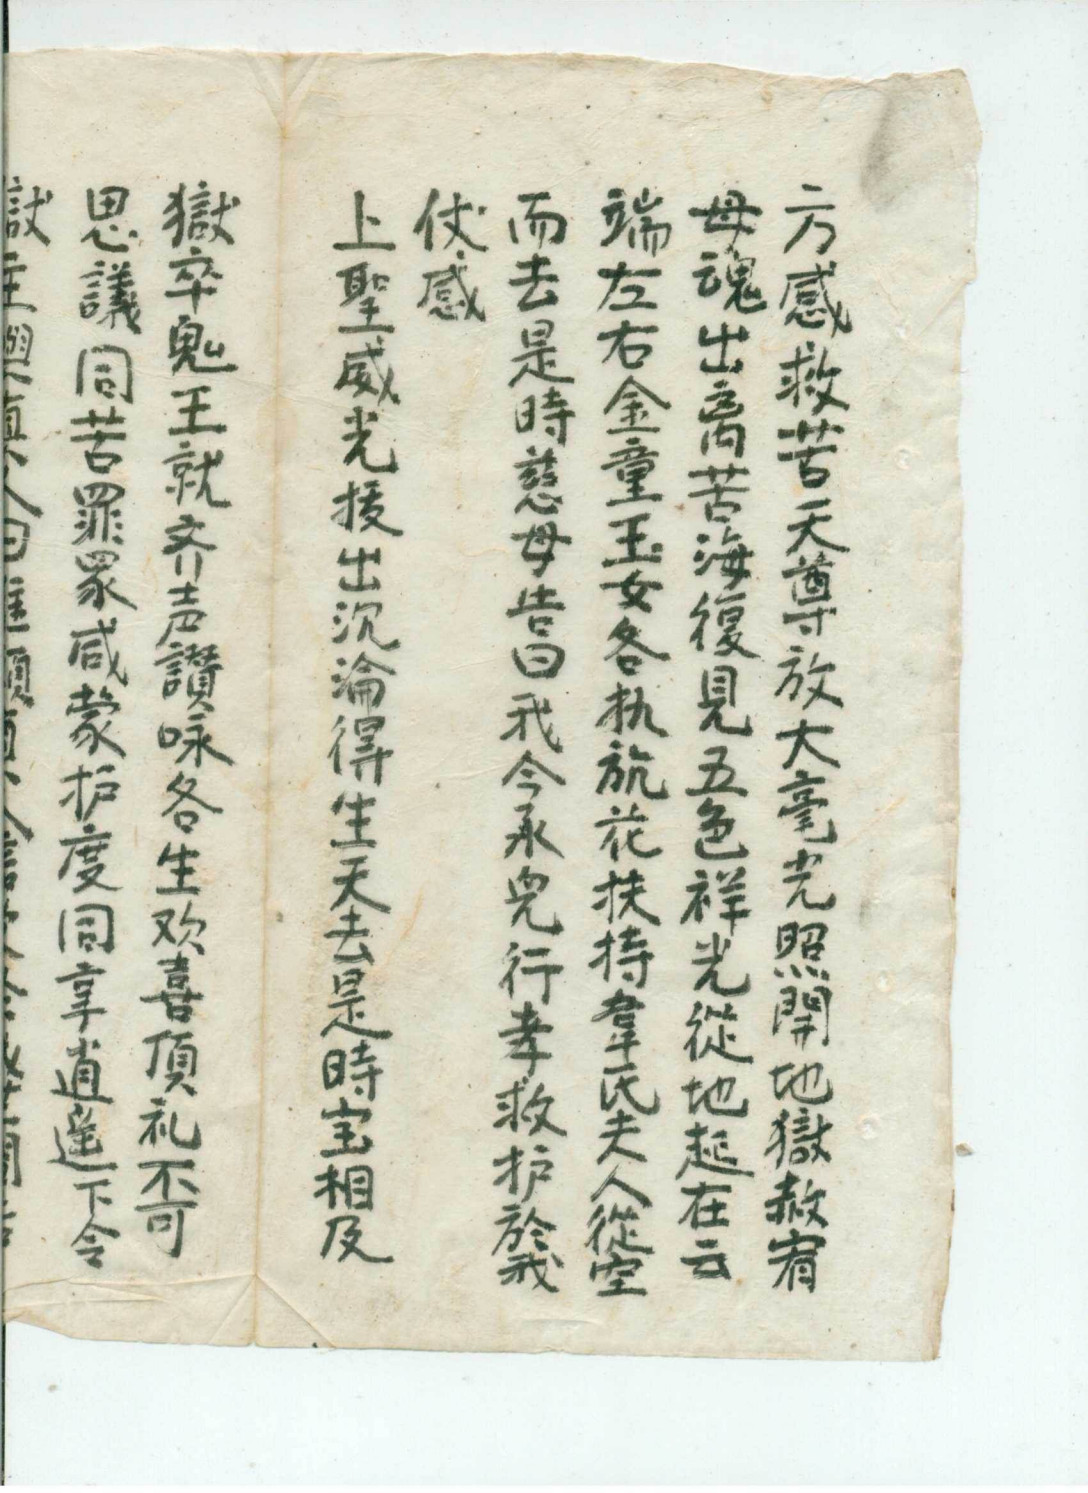 方感救苦天尊放大毫光照開地獄赦宥
母魂出离苦海復見五色祥光從地起在云
端左右金童玉女各执旛花扶持韋氏夫人從空
而去是時慈母告曰我今承兒行孝救护於我
仗感
上聖威光援出沉淪得生天去是時宝相及
獄卒鬼王就齐声讚咏各生欢喜頂礼不可
思議同苦罪眾咸蒙护度同享逍遥下令
獄主與真人曰惟願真人